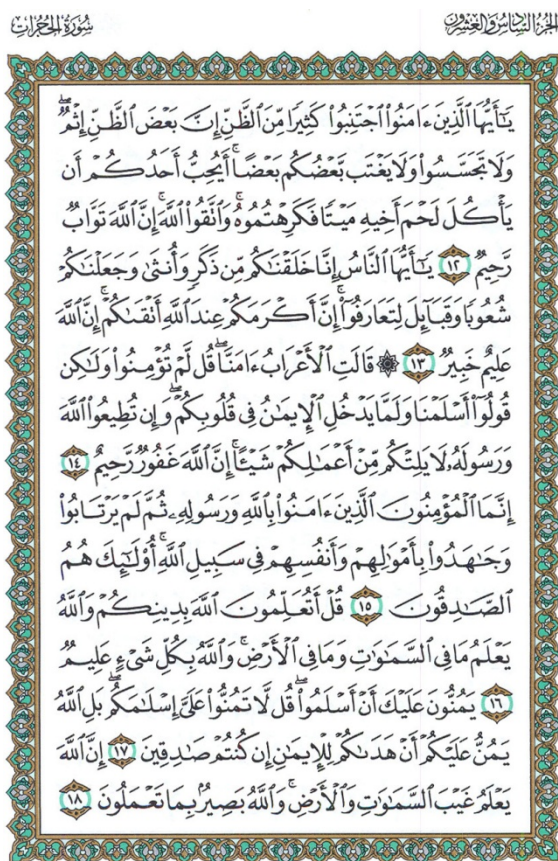 الجزء السادس والعشرون
سورة الحجرات
يَٰٓأَيُّهَا ٱلَّذِينَ ءَامَنُوا۟ ٱجْتَنِبُوا۟ كَثِيرًا مِّنَ ٱلظَّنِّ إِنَّ بَعْضَ ٱلظَّنِّ إِثْمٌ ۖ
وَلَا تَجَسَّسُوا۟ وَلَا يَغْتَب بَّعْضُكُم بَعْضًا ۚ أَيُحِبُّ أَحَدُكُمْ أَن
يَأْكُلَ لَحْمَ أَخِيهِ مَيْتًا فَكَرِهْتُمُوهُ ۚ وَٱتَّقُوا۟ ٱللَّهَ ۚ إِنَّ ٱللَّهَ تَوَّابٌ
رَّحِيمٌ ١٢ يَٰٓأَيُّهَا ٱلنَّاسُ إِنَّا خَلَقْنَٰكُم مِّن ذَكَرٍ وَأُنثَىٰ وَجَعَلْنَٰكُمْ
شُعُوبًا وَقَبَآئِلَ لِتَعَارَفُوٓا۟ ۚ إِنَّ أَكْرَمَكُمْ عِندَ ٱللَّهِ أَتْقَىٰكُمْ ۚ إِنَّ ٱللَّهَ
عَلِيمٌ خَبِيرٌ ١٣ ۞ قَالَتِ ٱلْأَعْرَابُ ءَامَنَّا ۖ قُل لَّمْ تُؤْمِنُوا۟ وَلَٰكِن
قُولُوٓا۟ أَسْلَمْنَا وَلَمَّا يَدْخُلِ ٱلْإِيمَٰنُ فِى قُلُوبِكُمْ ۖ وَإِن تُطِيعُوا۟ ٱللَّهَ
وَرَسُولَهُۥ لَا يَلِتْكُم مِّنْ أَعْمَٰلِكُمْ شَيْـًٔا ۚ إِنَّ ٱللَّهَ غَفُورٌ رَّحِيمٌ ١٤
إِنَّمَا ٱلْمُؤْمِنُونَ ٱلَّذِينَ ءَامَنُوا۟ بِٱللَّهِ وَرَسُولِهِۦ ثُمَّ لَمْ يَرْتَابُوا۟
وَجَٰهَدُوا۟ بِأَمْوَٰلِهِمْ وَأَنفُسِهِمْ فِى سَبِيلِ ٱللَّهِ ۚ أُو۟لَٰٓئِكَ هُمُ
ٱلصَّٰدِقُونَ ١٥ قُلْ أَتُعَلِّمُونَ ٱللَّهَ بِدِينِكُمْ وَٱللَّهُ
يَعْلَمُ مَا فِى ٱلسَّمَٰوَٰتِ وَمَا فِى ٱلْأَرْضِ ۚ وَٱللَّهُ بِكُلِّ شَىْءٍ عَلِيمٌ
١٦ يَمُنُّونَ عَلَيْكَ أَنْ أَسْلَمُوا۟ ۖ قُل لَّا تَمُنُّوا۟ عَلَىَّ إِسْلَٰمَكُم ۖ بَلِ ٱللَّهُ
يَمُنُّ عَلَيْكُمْ أَنْ هَدَىٰكُمْ لِلْإِيمَٰنِ إِن كُنتُمْ صَٰدِقِينَ ١٧ إِنَّ ٱللَّهَ
يَعْلَمُ غَيْبَ ٱلسَّمَٰوَٰتِ وَٱلْأَرْضِ ۚ وَٱللَّهُ بَصِيرٌۢ بِمَا تَعْمَلُونَ ١٨